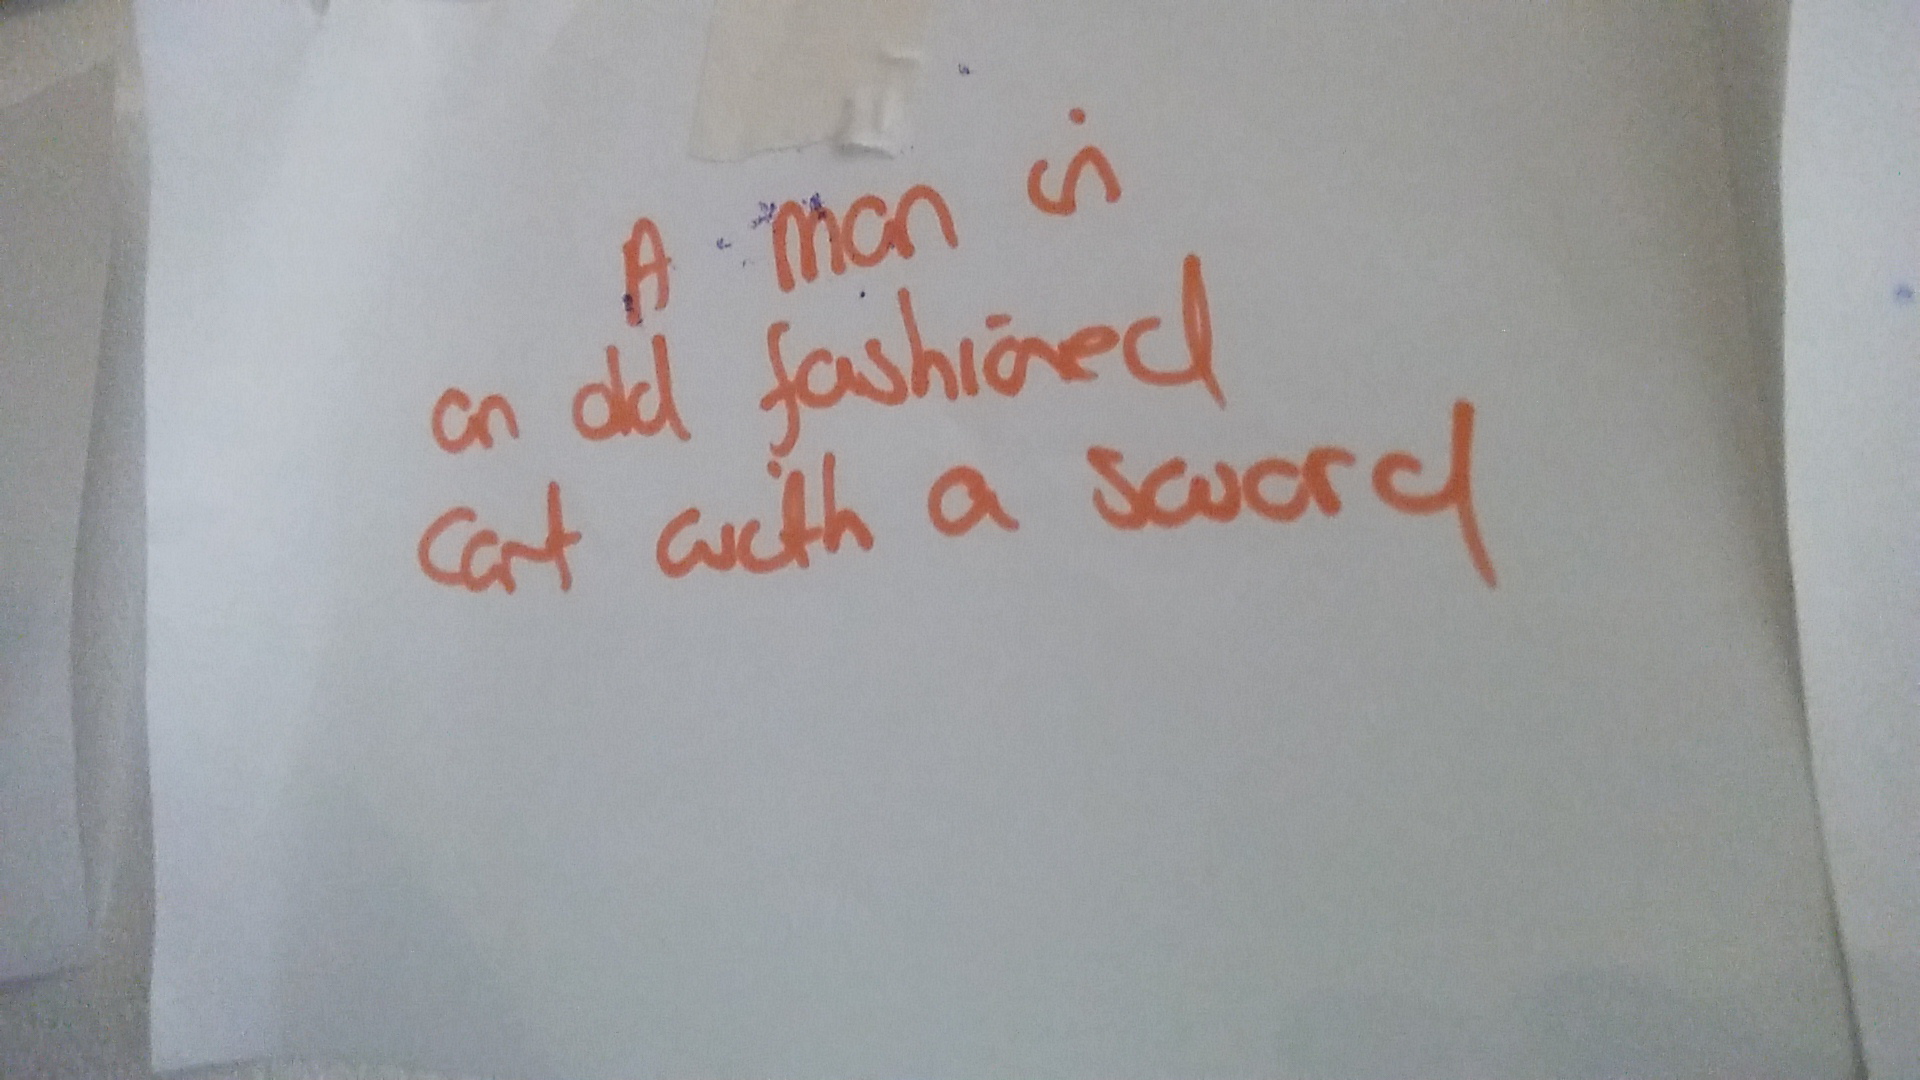 A man is
an old fashioned
cart with a sword